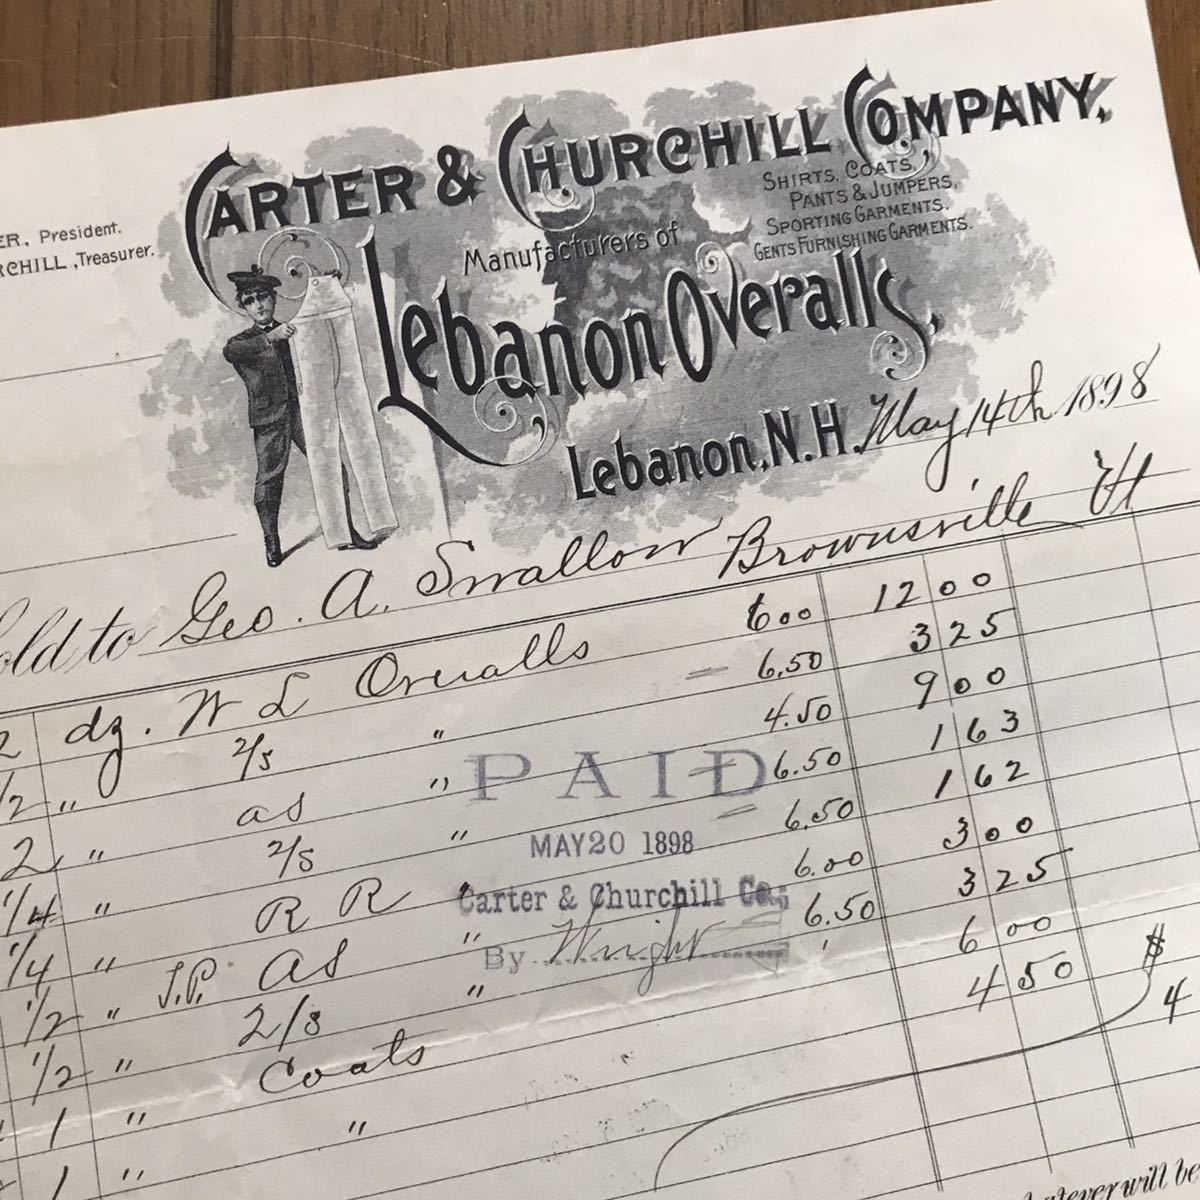 CARTER & CHURCHILL COMPANY,
ER, President.
RCHILL, Treasurer.
Manufacturers of
SHIRTS, COATS,
PANTS & JUMPERS,
SPORTING GARMENTS.
GENTS FURNISHING GARMENTS.
Lebanon Overalls,
Lebanon, N.H. May 14th 1898
Sold to Geo. A. Swallow Brownsville Vt
2 dz. W L Overalls 6.00 12 00
1/2 " 2/8 " 6.50 3 25
2 " as " 4.50 9 00
1/4 " 2/8 " 6.50 1 63
1/4 " R R " 6.50 1 62
1/2 " J.P. as " 6.00 3 00
1/2 " 2/8 " 6.50 3 25
1 " Coats 6 00
1 " " 4 50
$
4
PAID
MAY 20 1898
Carter & Churchill Co.,
By Wright
atever will be